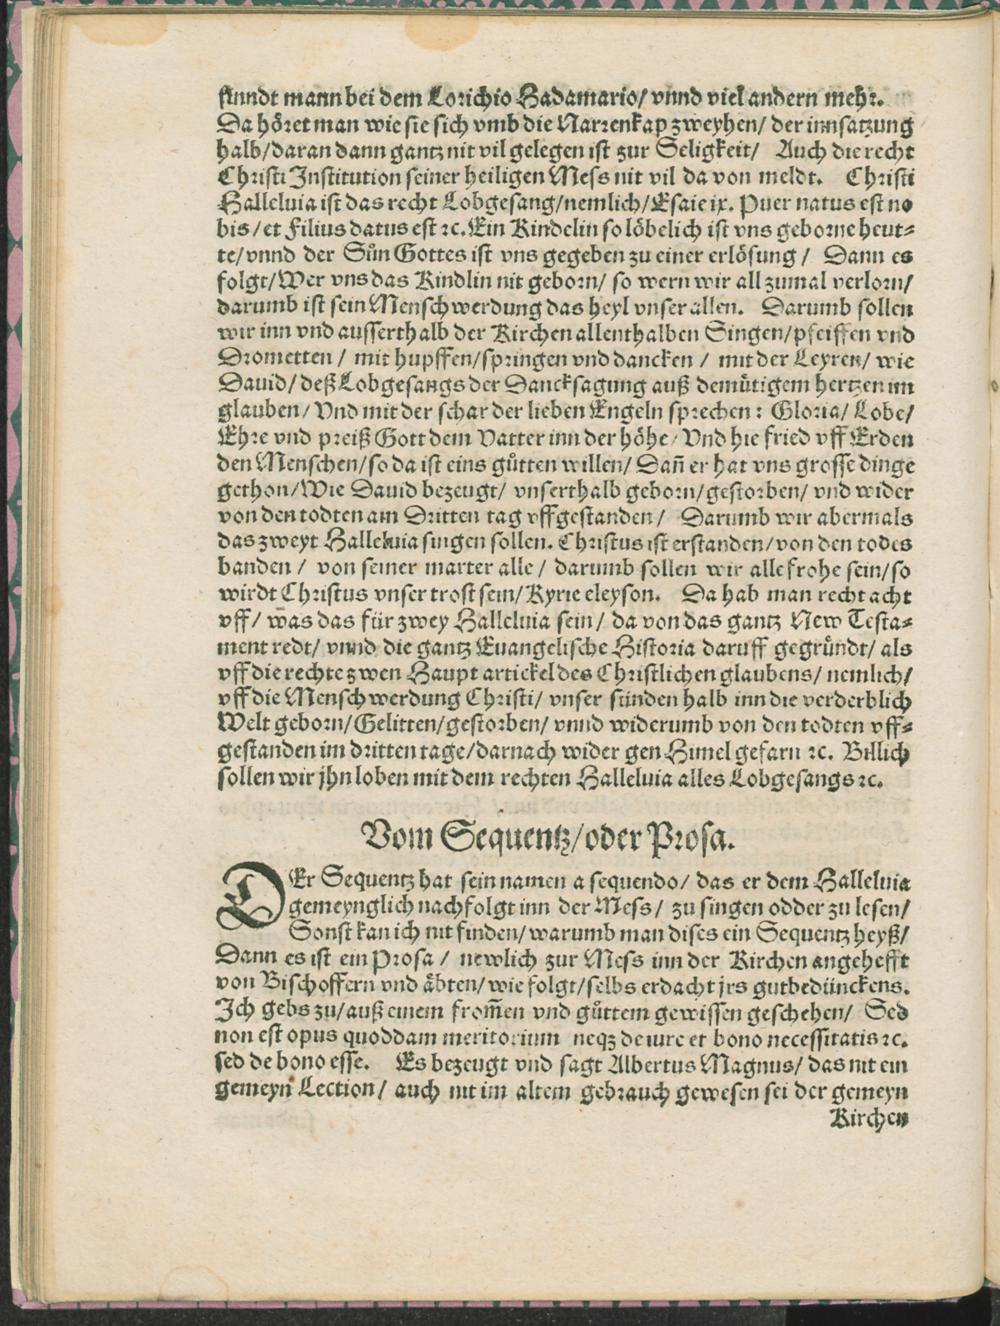 findt mann bei dem Lorichio Hadamario/ vnnd viel andern mehr.
Da höret man wie sie sich vmb die Narrenkap zweyhen/ der innsatzung
halb/daran dann gantz nit vil gelegen ist zur Seligkeit/ Auch die recht
Christi Institution seiner heiligen Mess nit vil da von meldt. Christi
Halleluia ist das recht Lobgesang/nemlich/Esaie ix. Puer natus est no
bis/et Filius datus est ꝛc. Ein Kindelin so löbelich ist vns geborne heut⸗
te/vnnd der Sůn Gottes ist vns gegeben zu einer erlösung/ Dann es
folgt/Wer vns das Kindlin nit geborn/ so wern wir all zumal verlorn/
darumb ist sein Menschwerdung das heyl vnser allen. Darumb sollen
wir inn vnd ausserthalb der Kirchen allenthalben Singen/pfeiffen vnd
Drometten/ mit hupffen/springen vnd dancken/ mit der Leyren/ wie
Dauid/ deß Lobgesangs der Dancksagung auß demütigem hertzen im
glauben/ Vnd mit der schar der lieben Engeln sprechen: Gloria/ Lobe/
Ehre vnd preiß Gott dem Vatter inn der höhe/ Vnd hie fried vff Erden
den Menschen/so da ist eins gůtten willen/ Dañ er hat vns grosse dinge
gethon/Wie Dauid bezeugt/ vnserthalb geborn/gestorben/ vnd wider
von den todten am Dritten tag vffgestanden/ Darumb wir abermals
das zweyt Halleluia singen sollen. Christus ist erstanden/von den todes
banden/ von seiner marter alle/ darumb sollen wir alle frohe sein/so
wirdt Christus vnser trost sein/Kyrie eleyson. Da hab man recht acht
vff/ was das für zwey Halleluia sein/ da von das gantz New Testa⸗
ment redt/ vnnd die gantz Euangelische Historia daruff gegründt/ als
vff die rechte zwen Haupt artickel des Christlichen glaubens/ nemlich/
vff die Menschwerdung Christi/ vnser sünden halb inn die verderblich
Welt geborn/Gelitten/gestorben/ vnnd widerumb von den todten vff⸗
gestanden im dritten tage/darnach wider gen Himel gefarn ꝛc. Billich
sollen wir jhn loben mit dem rechten Halleluia alles Lobgesangs ꝛc.
Vom Sequentz/oder Prosa.
DEr Sequentz hat sein namen a sequendo/ das er dem Halleluia
gemeynglich nachfolgt inn der Mess/ zu singen odder zu lesen/
Sonst kan ich nit finden/warumb man dises ein Sequentz heyß/
Dann es ist ein Prosa/ newlich zur Mess inn der Kirchen angehefft
von Bischoffern vnd äbten/wie folgt/selbs erdacht jrs gutbedünckens.
Ich gebs zu/auß einem from̃en vnd gůttem gewissen geschehen/ Sed
non est opus quoddam meritorium neqꝫ de iure et bono necessitatis ꝛc.
sed de bono esse. Es bezeugt vnd sagt Albertus Magnus/ das nit ein
gemeyn Lection/ auch nit im altem gebrauch gewesen sei der gemeyn
Kirchen